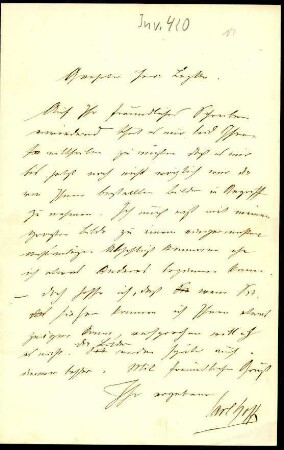 Inv. 410
Geehrter Herr
Auf Ihr freundliches Schreiben
erwidernd thut es mir leid Ihnen
mittheilen zu müssen daß es mir
bis jetzt noch nicht möglich war
von Ihnen bestellten Bilder in Angriff
zu nehmen. Ich muß erst mit meinem
großen Bilde zu einem
Abschluß kommen ehe
ich etwas Anderes beginnen kann.
— doch hoffe ich, daß wenn Sie
kommen ich Ihnen etwas
zeigen kann, versprechen will ich
es nicht. Die Bilder werden später auch
immer besser. Mit freundlichem Gruß
Ihr ergebener
Carl Hoff